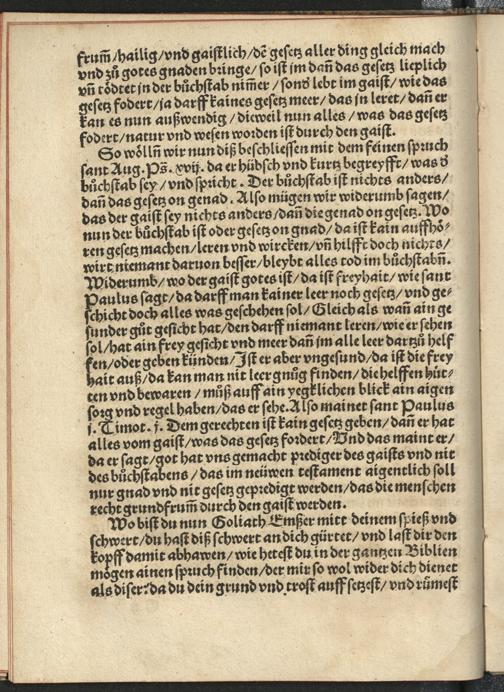 frum̃/hailig/vnd gaistlich/dẽ gesetz aller ding gleich mach
vnd zů gotes gnaden bringe/so ist im dañ das gesetz lieplich
vñ tödtet in der bůchstab nim̃er/sond̕ lebt im gaist/wie das
gesetz fodert/ja darff kaines gesetz meer/das in leret/dañ er
kan es nun außwendig/dieweil nun alles/was das gesetz
fodert/natur vnd wesen worden ist durch den gaist.
So wöllñ wir nun diß beschliessen mit dem feinen spruch
sant Aug. Ps̃. xvij. da er hübsch vnd kurtz begreyfft/was d̕
bůchstab sey/vnd spricht. Der bůchstab ist nichts anders/
dañ das gesetz on genad. Also mügen wir widerumb sagen/
das der gaist sey nichts anders/dañ die genad on gesetz. Wo
nun der bůchstab ist oder gesetz on gnad/da ist kain auffhö⸗
ren gesetz machen/leren vnd wircken/vñ hilfft doch nichts/
wirt niemant daruon besser/bleybt alles tod im bůchstabñ.
Widerumb/wo der gaist gotes ist/da ist freyhait/wie sant
Paulus sagt/da darff man kainer leer noch gesetz/vnd ge⸗
schicht doch alles was geschehen sol/Gleich als wañ ain ge
sunder gůt gesicht hat/den darff niemant leren/wie er sehen
sol/hat ain frey gesicht vnd meer dañ jm alle leer dartzů helf
fen/oder geben künden/Ist er aber vngesund/da ist die frey
hait auß/da kan man nit leer gnůg finden/die helffen hüt⸗
ten vnd bewaren/můß auff ain yegklichen blick ain aigen
sorg vnd regel haben/das er sehe. Also mainet sant Paulus
j. Timot. j. Dem gerechten ist kain gesetz geben/dañ er hat
alles vom gaist/was das gesetz fordert/Vnd das maint er/
da er sagt/got hat vns gemacht prediger des gaists vnd nit
des bůchstabens/das im neüwen testament aigentlich soll
nur gnad vnd nit gesetz gepredigt werden/das die menschen
recht grundfrum̃ durch den gaist werden.
Wo bist du nun Goliath Emßer mitt deinem spieß vnd
schwert/du hast diß schwert an dich gürtet/vnd last dir den
kopff damit abhawen/wie hetest du in der gantzen Biblien
mögen ainen spruch finden/der mir so wol wider dich dienet
als diser: da du dein grund vnd trost auff setzest/vnd rümest